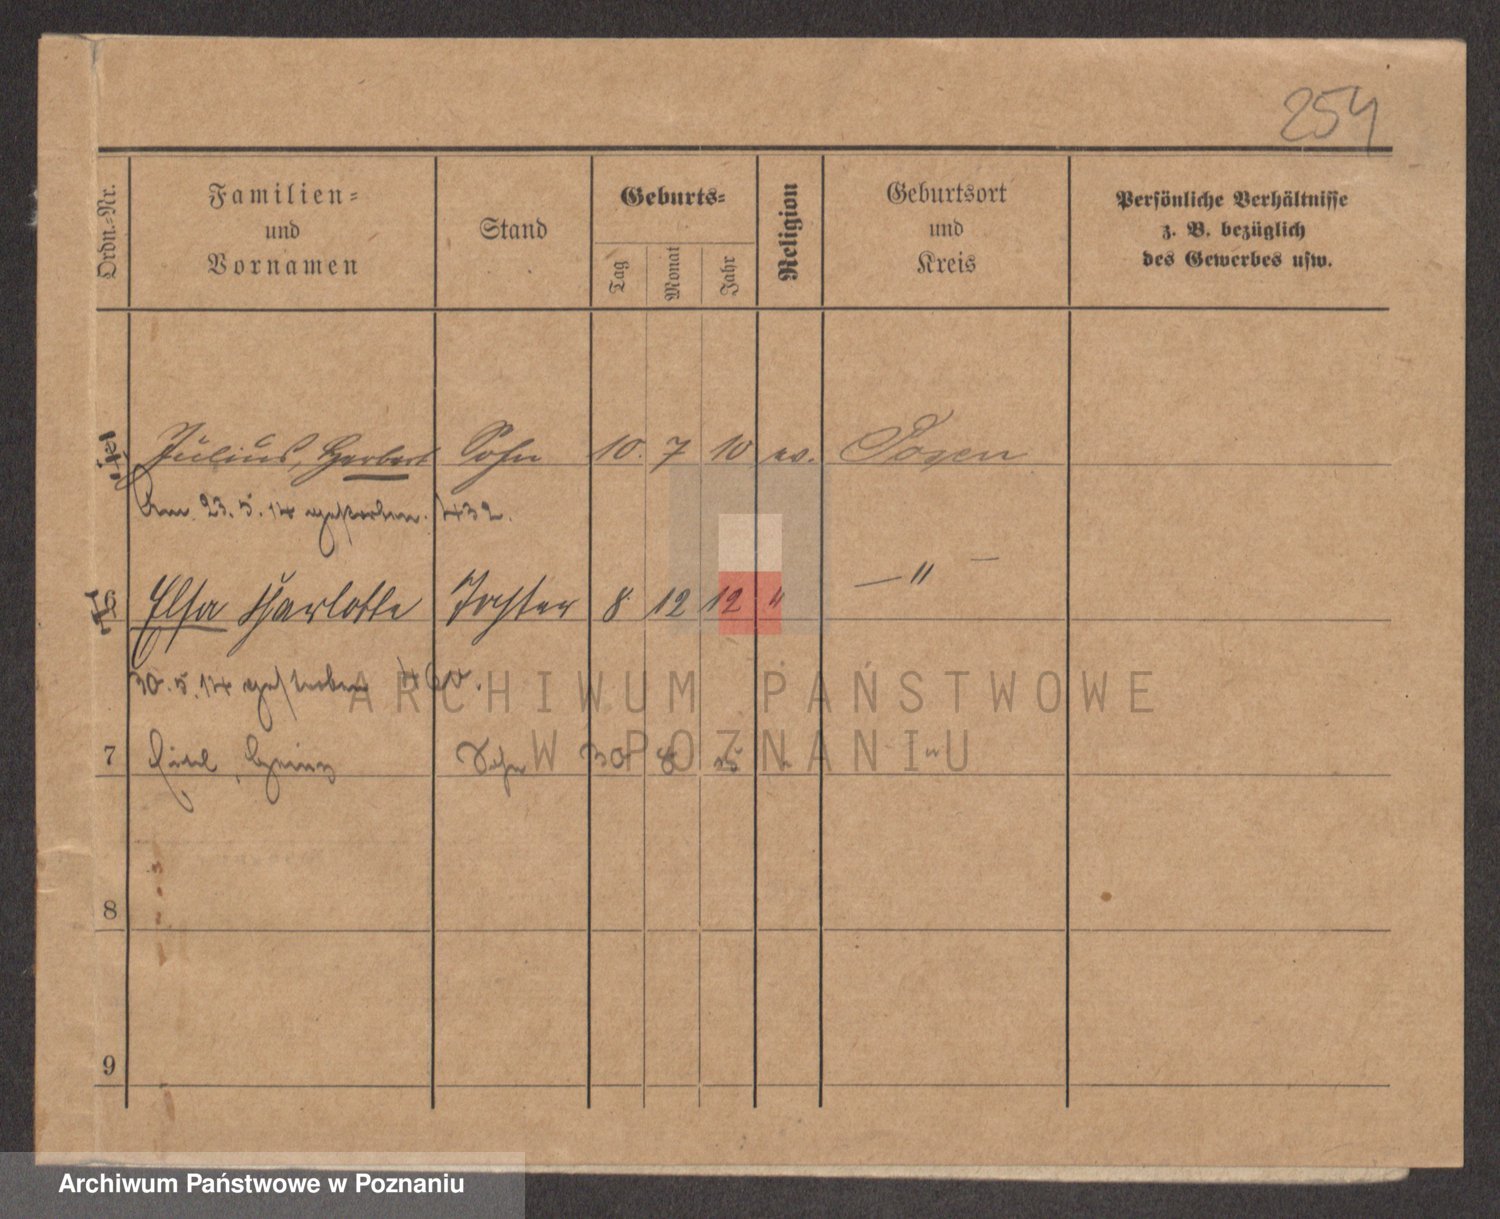 254
Ordn.-Nr.
Familien-
und
Vornamen
Stand
Geburts-
Tag
Monat
Jahr
Religion
Geburtsort
und
Kreis
Persönliche Verhältnisse
z. B. bezüglich
des Gewerbes usw.
Julius, Herbert Sohn 10. 7 10 ev. Posen
Am 23. 5. 14 gestorben. 432.
6 Elsa Charlotte Tochter 8. 12 12 " — " —
30. 5. 14 gestorben 460.
7 Heinz Sohn 30 8 15 "
8
9
ARCHIWUM PAŃSTWOWE
W POZNANIU
Archiwum Państwowe w Poznaniu